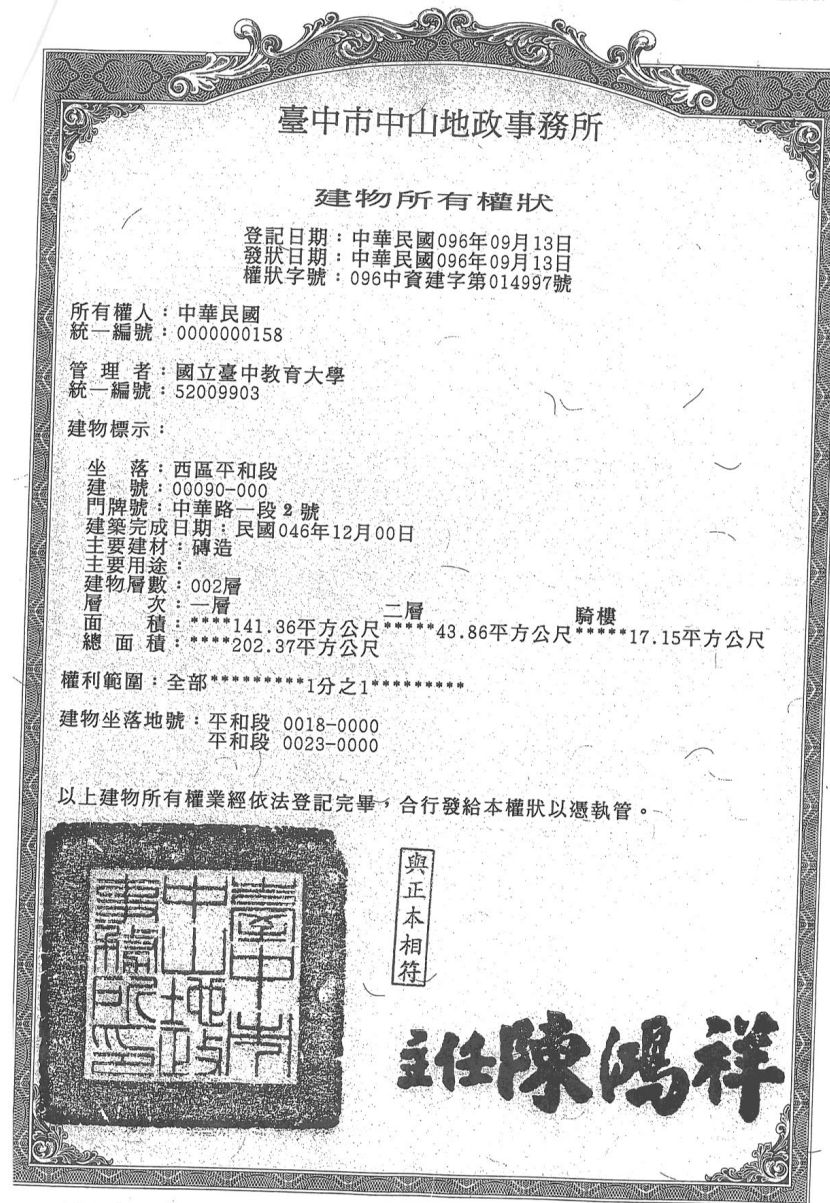 臺中市中山地政事務所
建物所有權狀
登記日期：中華民國096年09月13日
發狀日期：中華民國096年09月13日
權狀字號：096中資建字第014997號
所有權人：中華民國
統一編號：0000000158
管 理 者：國立臺中教育大學
統一編號：52009903
建物標示：
坐　落：西區平和段
建　號：00090-000
門牌號：中華路一段2號
建築完成日期：民國046年12月00日
主要建材：磚造
主要用途：
建物層數：002層
層　　次：一層 二層 騎樓
面　　積：****141.36平方公尺*****43.86平方公尺*****17.15平方公尺
總 面 積：****202.37平方公尺
權利範圍：全部*********1分之1*********
建物坐落地號：平和段 0018-0000
平和段 0023-0000
以上建物所有權業經依法登記完畢，合行發給本權狀以憑執管。
與正本相符
臺中市中山地政事務所印
主任陳鴻祥